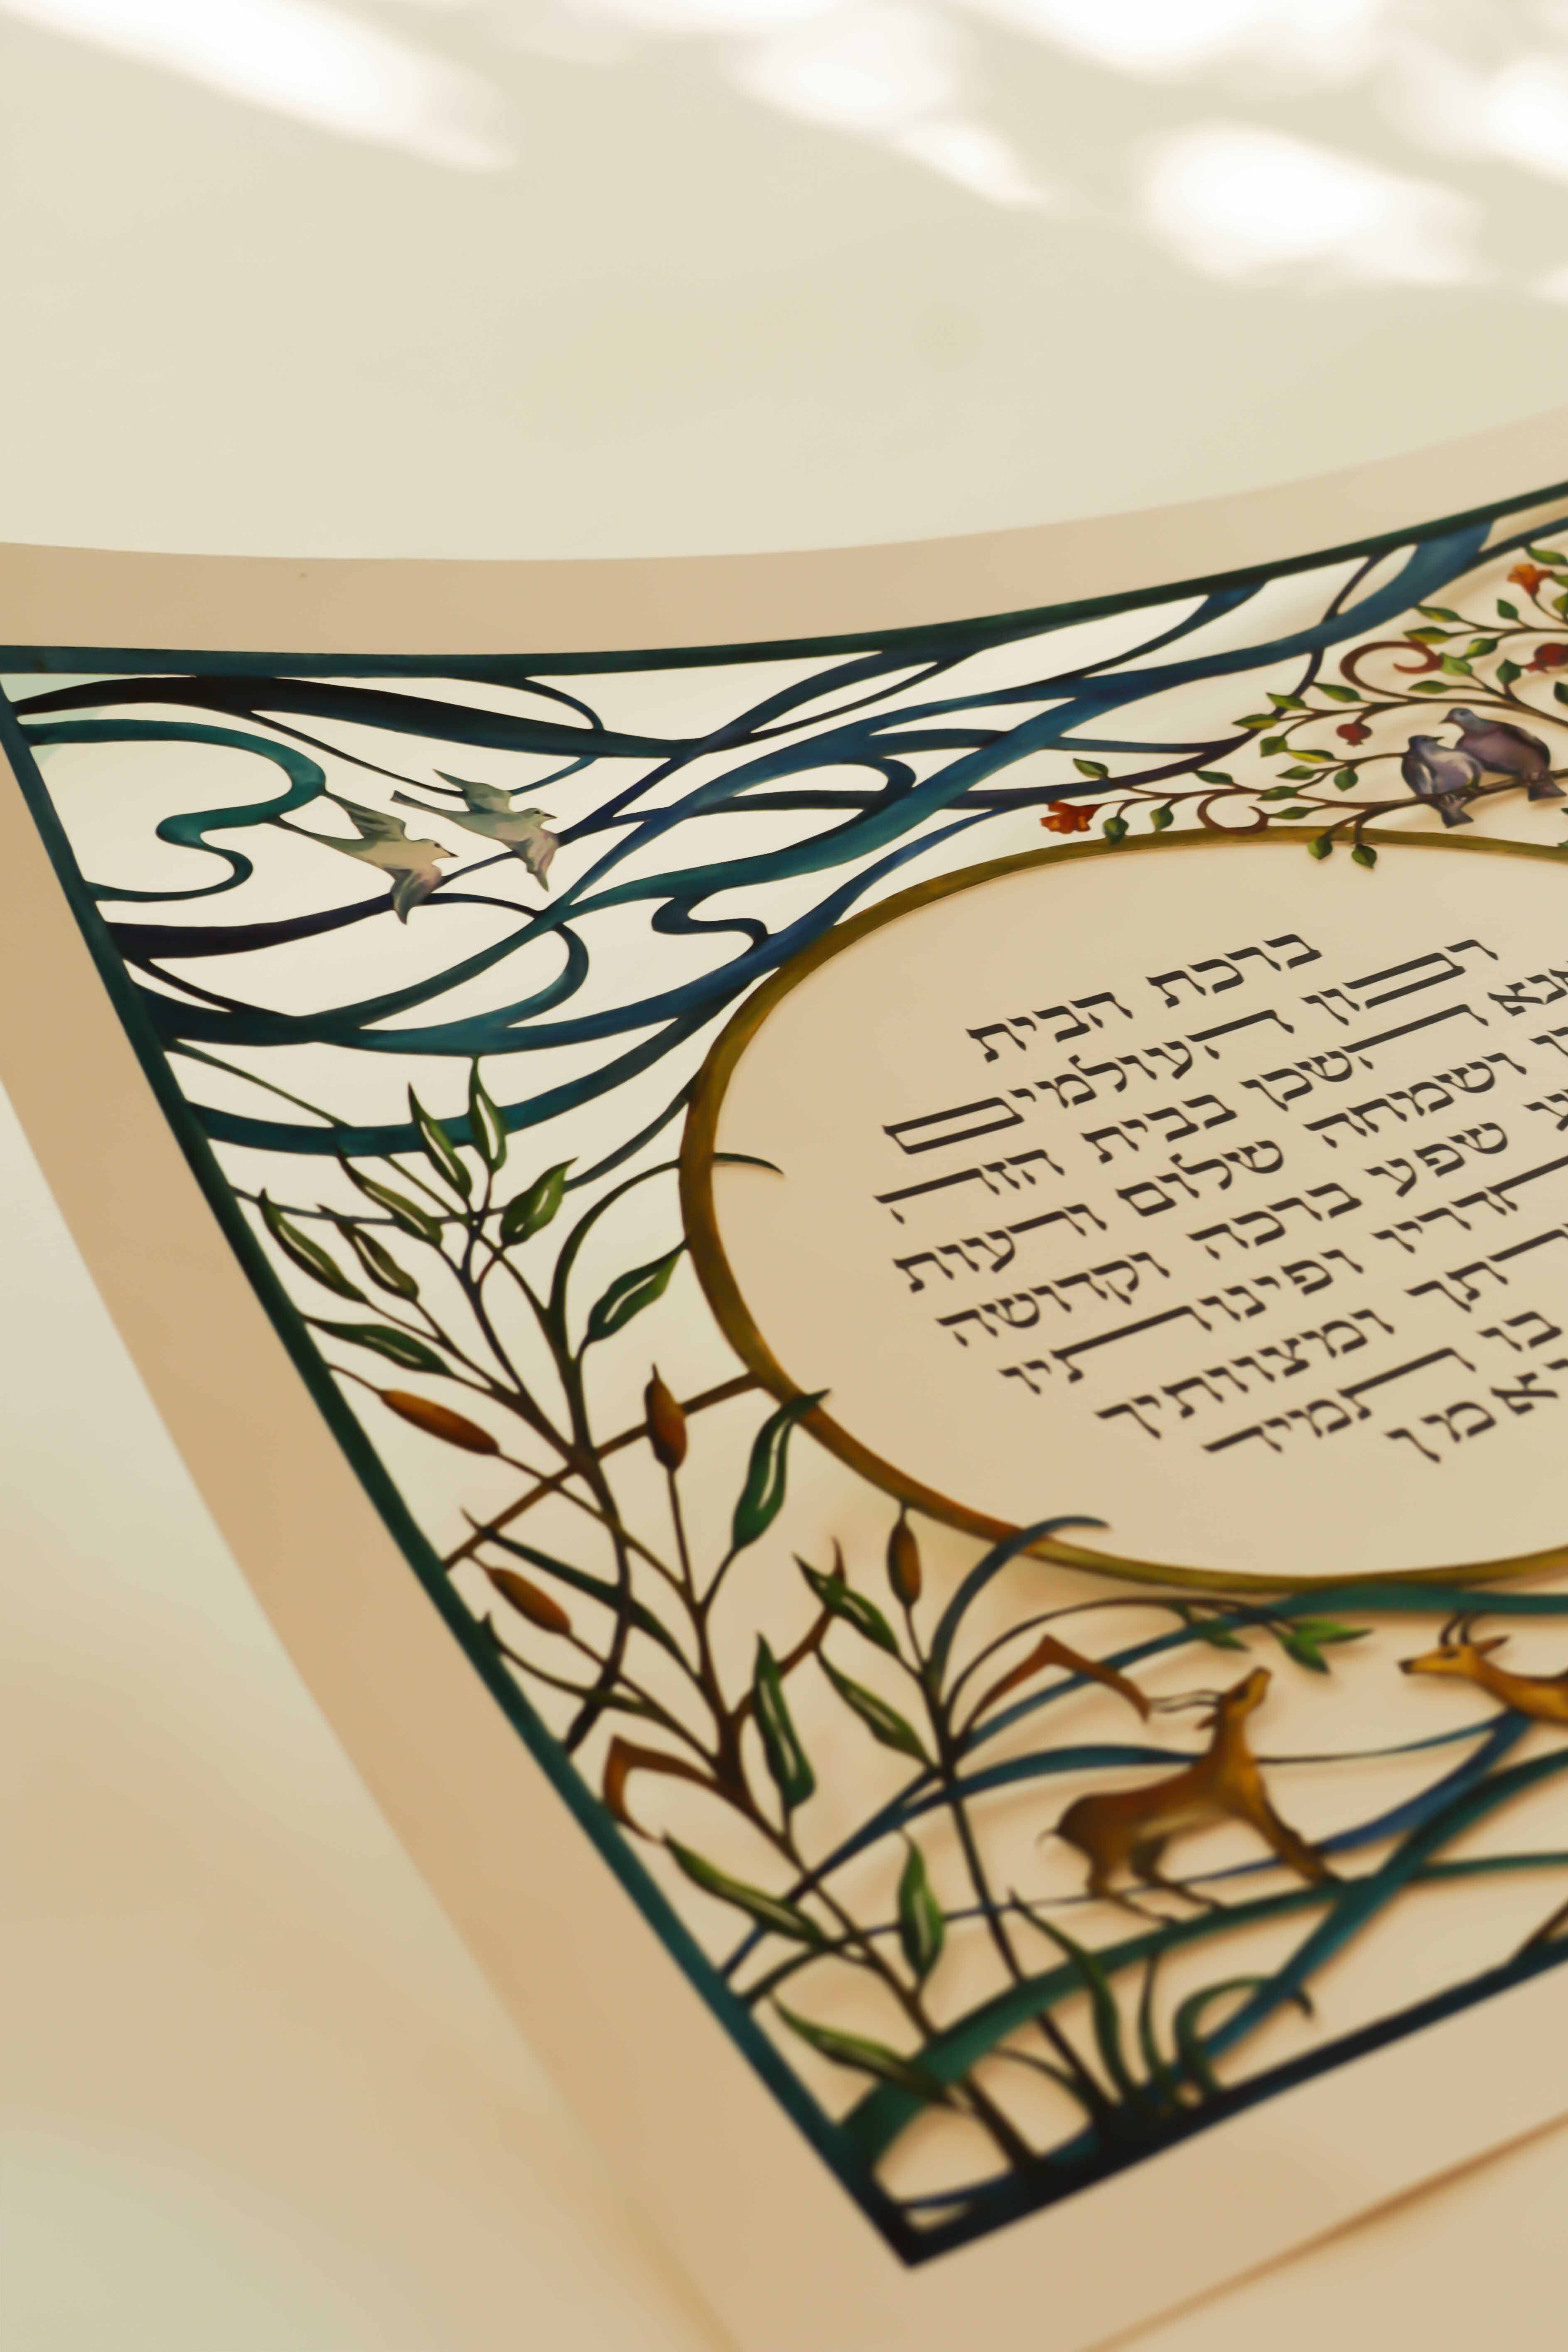 ברכת הבית
רבון העולמים
אנא השכן בבית הזה
ושמחה שלום ורעות
שפע ברכה וקדושה
חדריו ופינותיו
ומצוותיך
בו תמיד
אמן